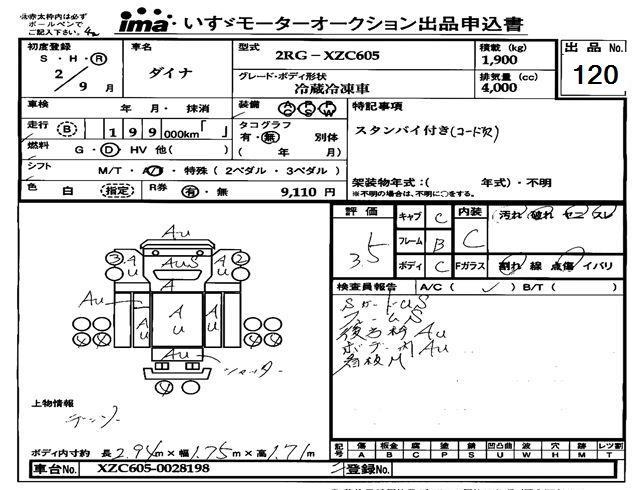 ※赤太枠内は必ず
ボールペンで
ご記入下さい。
ima いすゞモーターオークション出品申込書
初度登録 車名 型式 積載 (kg) 出品No.
S・H・R 2/9月 ダイナ 2RG-XZC605 1,900 120
グレード・ボディ形状 排気量 (cc)
冷蔵冷凍車 4,000
車検 年 月・抹消 装備 AC PS PW 特記事項
走行 B 199 000km「 」 タコグラフ スタンバイ付き(コード欠)
有・無 別体
燃料 G・D・HV 他( ) ( 年 月)
シフト M/T・A/T・特殊(2ペダル・3ペダル) 架装物年式:( 年式)・不明
色 白 指定 R券 有・無 9,110 円 ※不明の場合は、不明に○をする。
評価 3.5 キャブ C 内装 C 汚れ 破れ ヤニ スレ
フレーム B
ボディ C Fガラス 割れ 線 点傷 イバリ
検査員報告 A/C( ✓ ) B/T( )
SガードUS
フレームS
ボデー内AU
看板M
AU
3 AU AUS AU 2
A
AU AU AU
AU シャッター
上物情報
ボディ内寸約 長2.94m×幅1.75m×高1.71m
記号 傷 板金 腐 塗 錆 凹凸曲 波 穴 跡 レツ割
A B C P S U W H M T
車台No. XZC605-0028198 登録No.